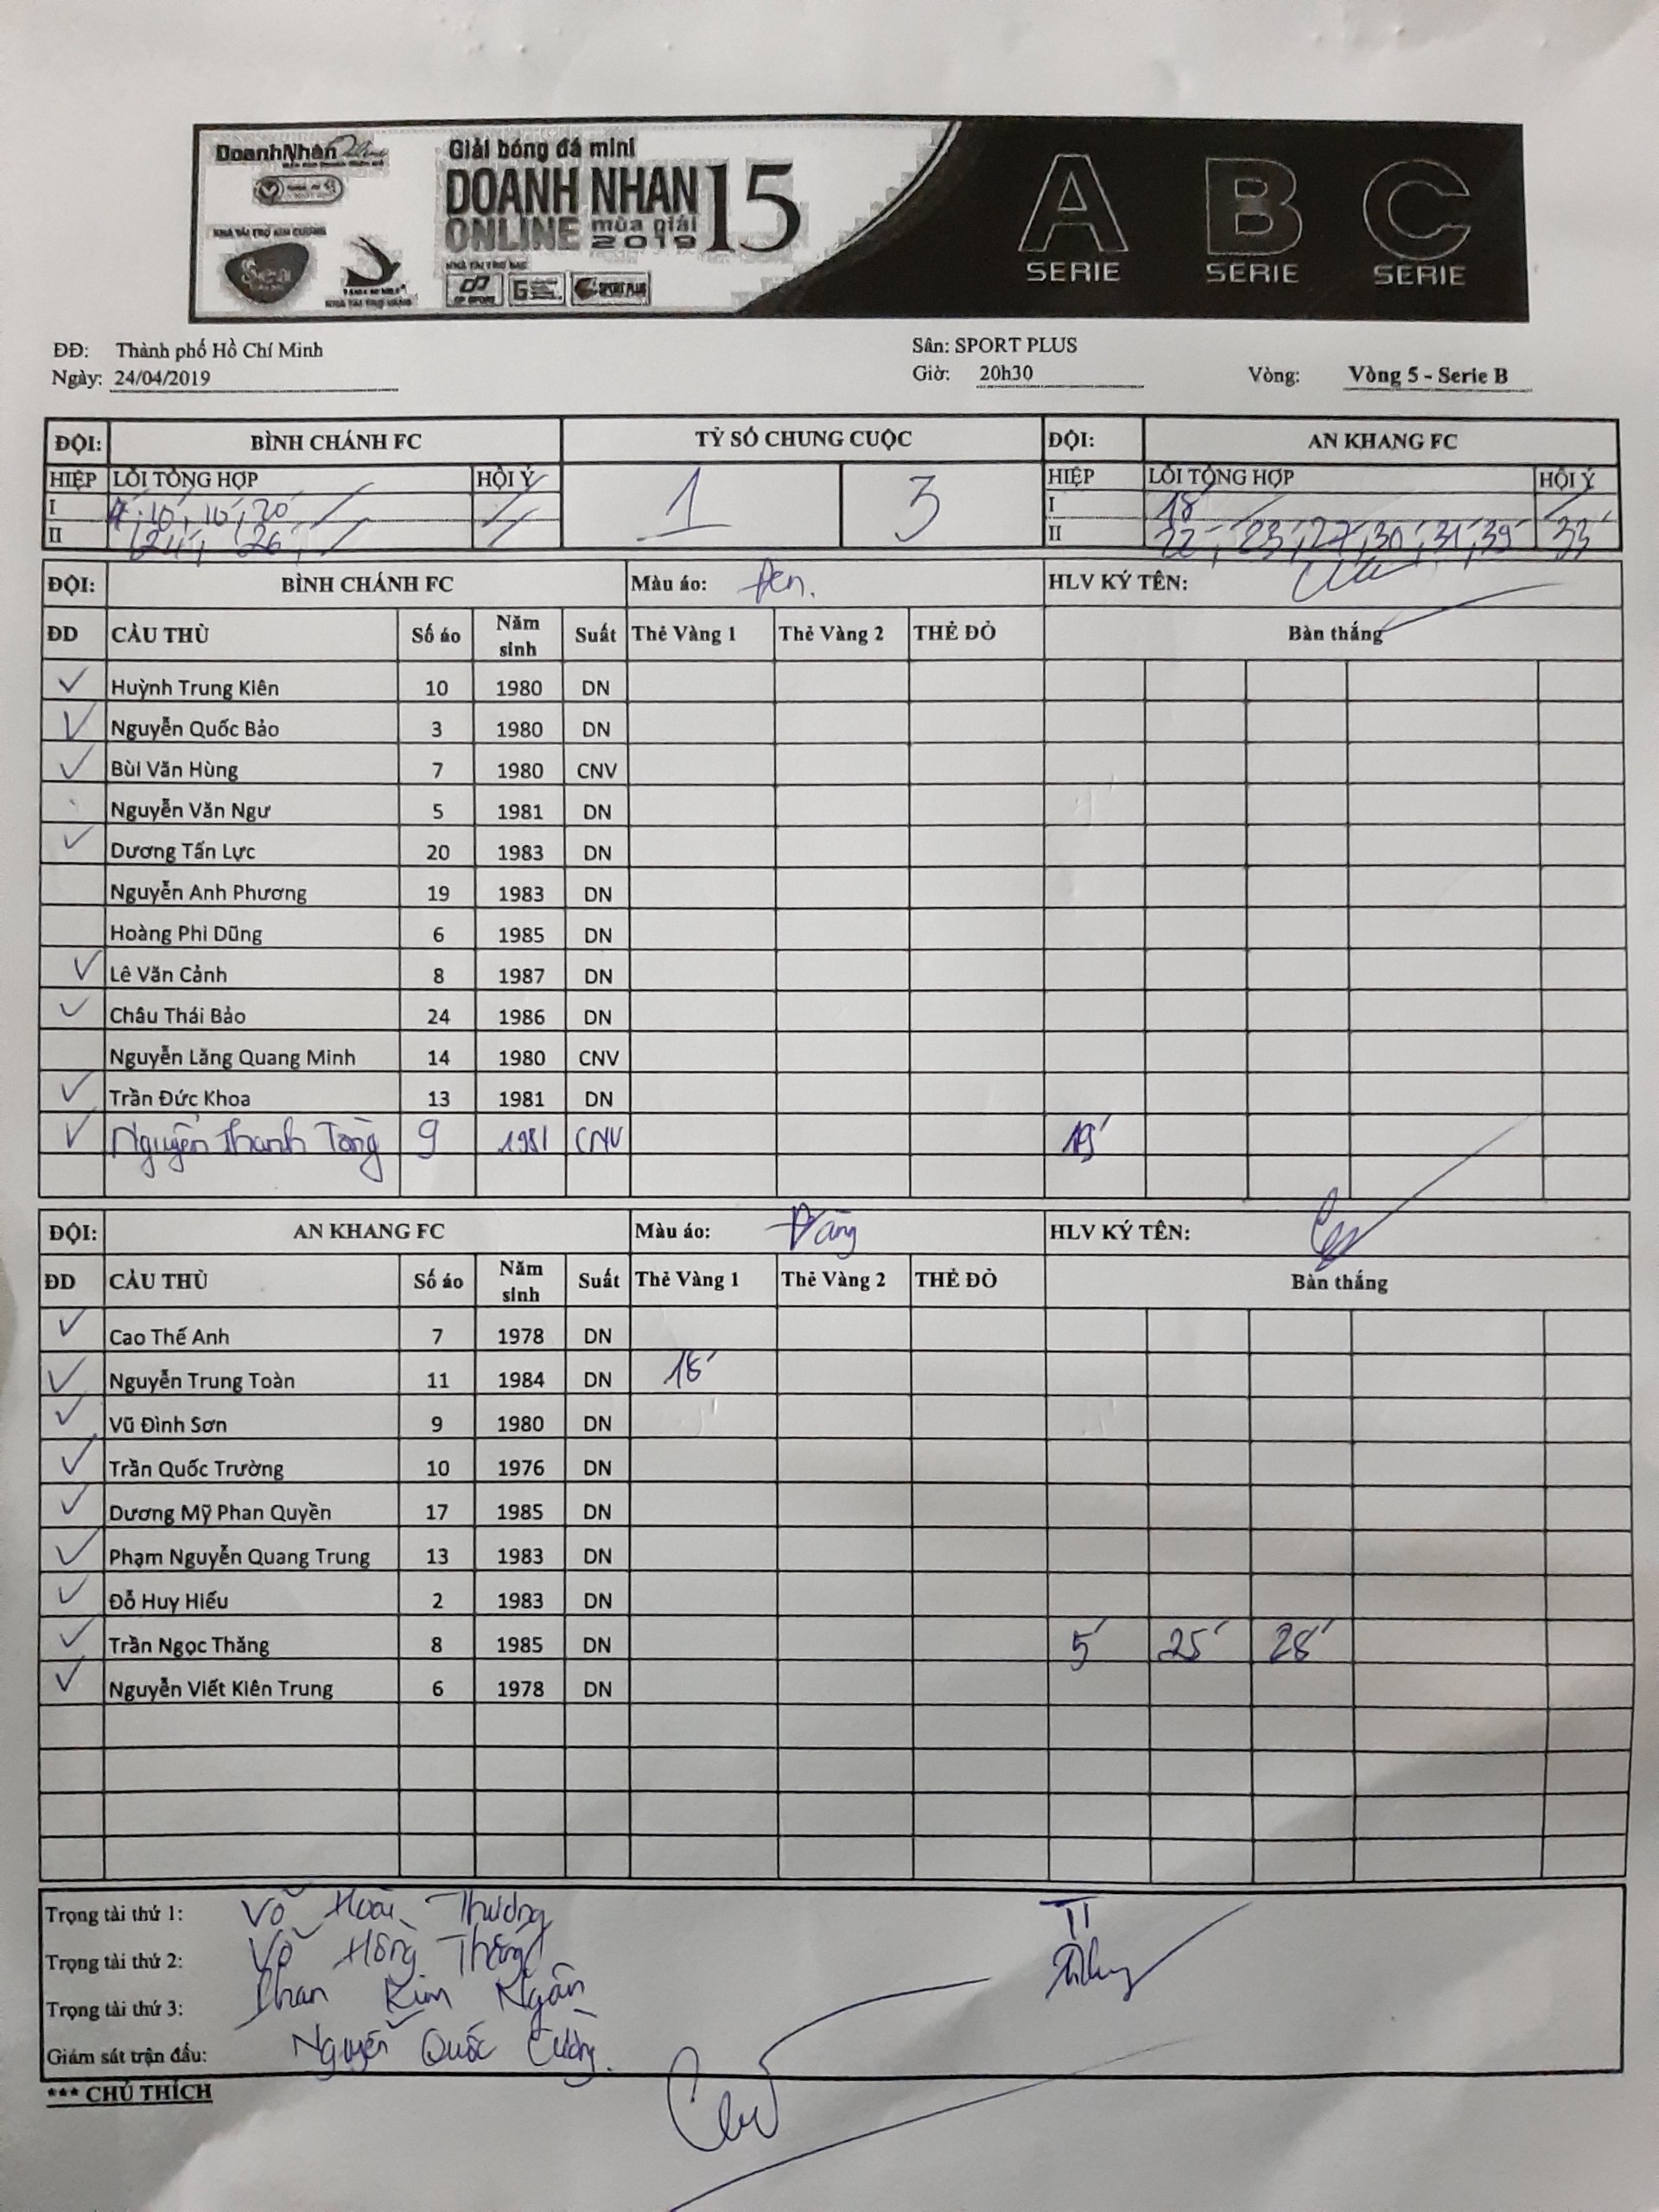 DoanhNhân Online
Giải bóng đá mini
DOANH NHAN 15
ONLINE mùa giải 2019
NHÀ TÀI TRỢ KIM CƯƠNG
NHÀ TÀI TRỢ VÀNG
NHÀ TÀI TRỢ BẠC
SPORT PLUS
A B C
SERIE SERIE SERIE
ĐĐ: Thành phố Hồ Chí Minh Sân: SPORT PLUS
Ngày: 24/04/2019 Giờ: 20h30 Vòng: Vòng 5 - Serie B
ĐỘI: BÌNH CHÁNH FC TỶ SỐ CHUNG CUỘC ĐỘI: AN KHANG FC
HIỆP LỖI TỔNG HỢP HỘI Ý 1 3 HIỆP LỖI TỔNG HỢP HỘI Ý
I 10', 16', 20' I 18'
II 24', 26' II 22', 23', 27', 30', 31', 39' 33'
ĐỘI: BÌNH CHÁNH FC Màu áo: Đen. HLV KÝ TÊN:
ĐD CẦU THỦ Số áo Năm sinh Suất Thẻ Vàng 1 Thẻ Vàng 2 THẺ ĐỎ Bàn thắng
Huỳnh Trung Kiên 10 1980 DN
Nguyễn Quốc Bảo 3 1980 DN
Bùi Văn Hùng 7 1980 CNV
Nguyễn Văn Ngư 5 1981 DN
Dương Tấn Lực 20 1983 DN
Nguyễn Anh Phương 19 1983 DN
Hoàng Phi Dũng 6 1985 DN
Lê Văn Cảnh 8 1987 DN
Châu Thái Bảo 24 1986 DN
Nguyễn Lăng Quang Minh 14 1980 CNV
Trần Đức Khoa 13 1981 DN
Nguyễn Thanh Tòng 9 1981 CNV 19'
ĐỘI: AN KHANG FC Màu áo: Vàng HLV KÝ TÊN:
ĐD CẦU THỦ Số áo Năm sinh Suất Thẻ Vàng 1 Thẻ Vàng 2 THẺ ĐỎ Bàn thắng
Cao Thế Anh 7 1978 DN
Nguyễn Trung Toàn 11 1984 DN 18'
Vũ Đình Sơn 9 1980 DN
Trần Quốc Trường 10 1976 DN
Dương Mỹ Phan Quyền 17 1985 DN
Phạm Nguyễn Quang Trung 13 1983 DN
Đỗ Huy Hiếu 2 1983 DN
Trần Ngọc Thăng 8 1985 DN 5' 25' 28'
Nguyễn Viết Kiên Trung 6 1978 DN
Trọng tài thứ 1: Võ Hoài Thương
Trọng tài thứ 2: Võ Hồng Thống
Trọng tài thứ 3: Phan Kim Ngân
Giám sát trận đấu: Nguyễn Quốc Cường.
*** CHÚ THÍCH